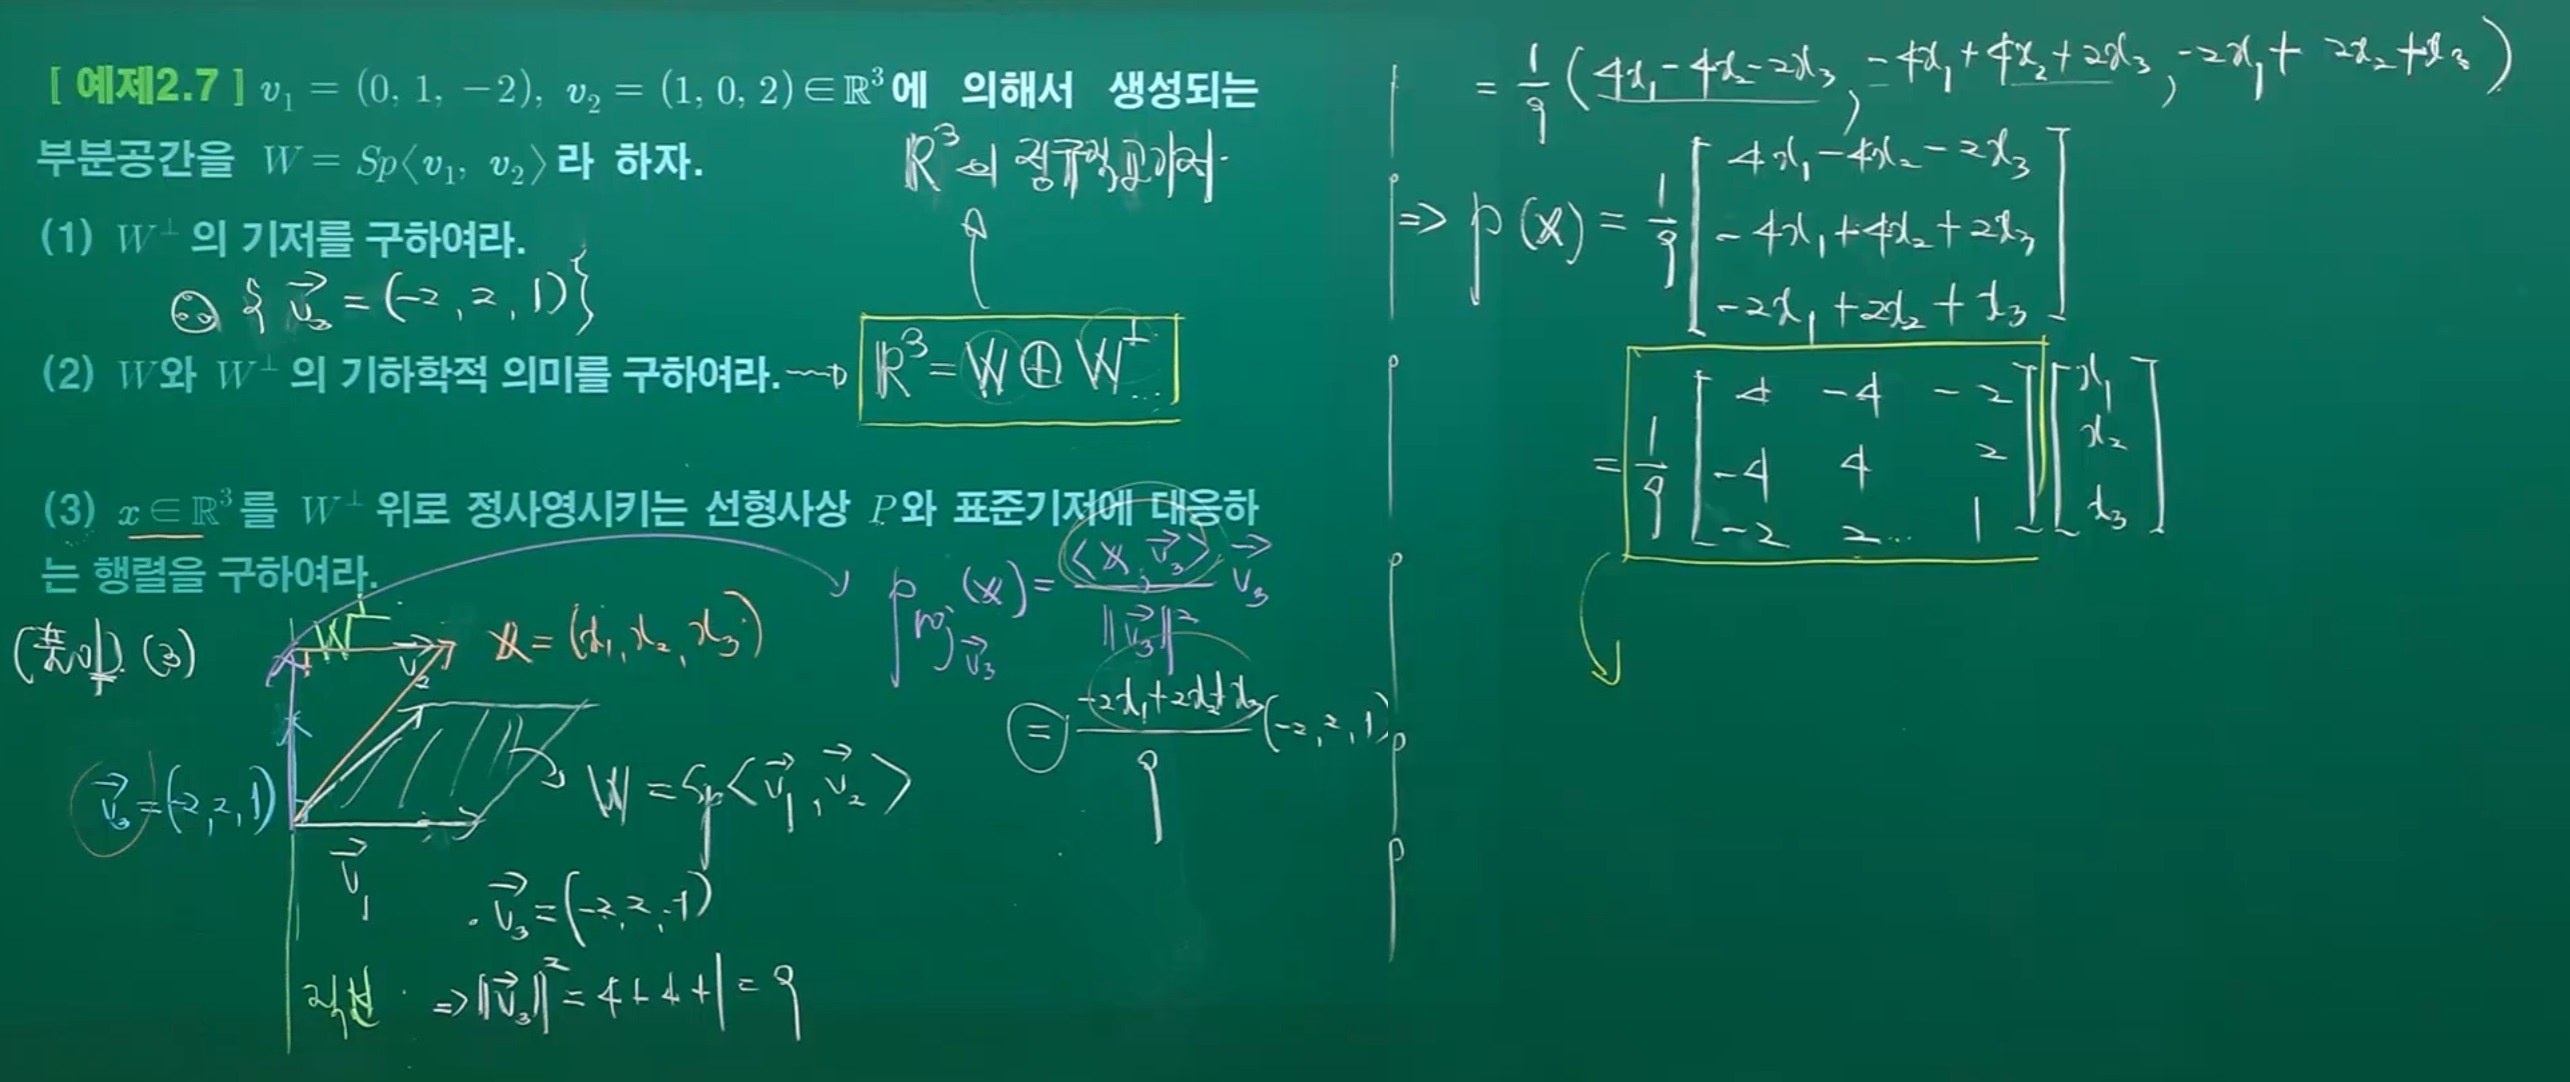 [ 예제2.7 ] v₁ = (0, 1, −2), v₂ = (1, 0, 2)∈ℝ³에 의해서 생성되는
부분공간을 W = Sp⟨v₁, v₂⟩라 하자.
ℝ³의 정규직교기저.
(1) W⊥의 기저를 구하여라.
{ v₃ = (-2, 2, 1)}
(2) W와 W⊥의 기하학적 의미를 구하여라.
ℝ³ = W ⊕ W⊥
(3) x∈ℝ³를 W⊥ 위로 정사영시키는 선형사상 P와 표준기저에 대응하
는 행렬을 구하여라.
(풀이). (3)
W⊥
v₂
x = (x₁, x₂, x₃)
v₃ = (-2, 2, 1)
W = Sp⟨v₁, v₂⟩
v₁
v₃ = (-2, 2, 1)
직선
=> ‖v₃‖² = 4+4+1 = 9
Proj_v₃ (x) = <x, v₃> / ‖v₃‖² v₃
= -2x₁+2x₂+x₃ / 9 (-2, 2, 1)
= 1/9 (4x₁-4x₂-2x₃, -4x₁+4x₂+2x₃, -2x₁+2x₂+x₃)
=> p(x) = 1/9 [ 4x₁-4x₂-2x₃
-4x₁+4x₂+2x₃
-2x₁+2x₂+x₃ ]
= 1/9 [ 4 -4 -2 ] [ x₁ ]
[ -4 4 2 ] [ x₂ ]
[ -2 2 1 ] [ x₃ ]